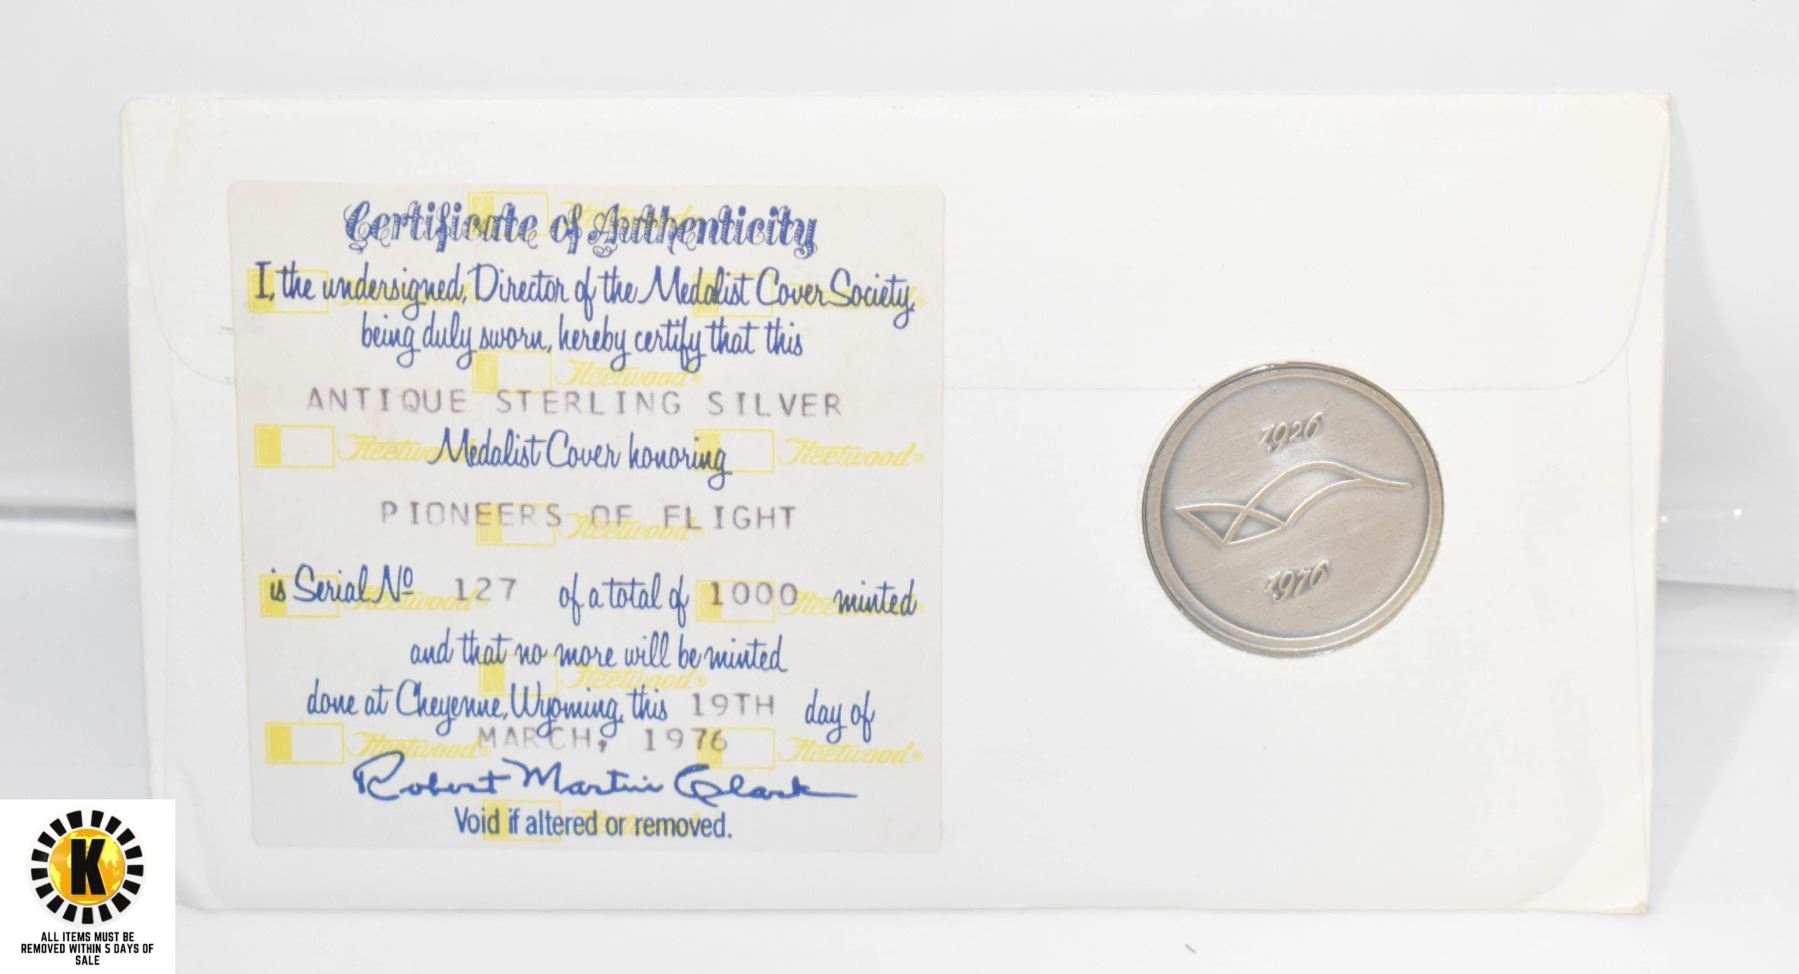 Certificate of Authenticity
I, the undersigned, Director of the Medalist Cover Society,
being duly sworn, hereby certify that this
Fleetwood®
ANTIQUE STERLING SILVER
Medalist Cover honoring
Fleetwood®
PIONEERS OF FLIGHT
Fleetwood®
is Serial Nº 127 of a total of 1000 minted
and that no more will be minted
Fleetwood®
done at Cheyenne, Wyoming, this 19TH day of
MARCH, 1976
Fleetwood®
Fleetwood®
Robert Martin Clark
Void if altered or removed.
1926
1976
K
ALL ITEMS MUST BE
REMOVED WITHIN 5 DAYS OF
SALE